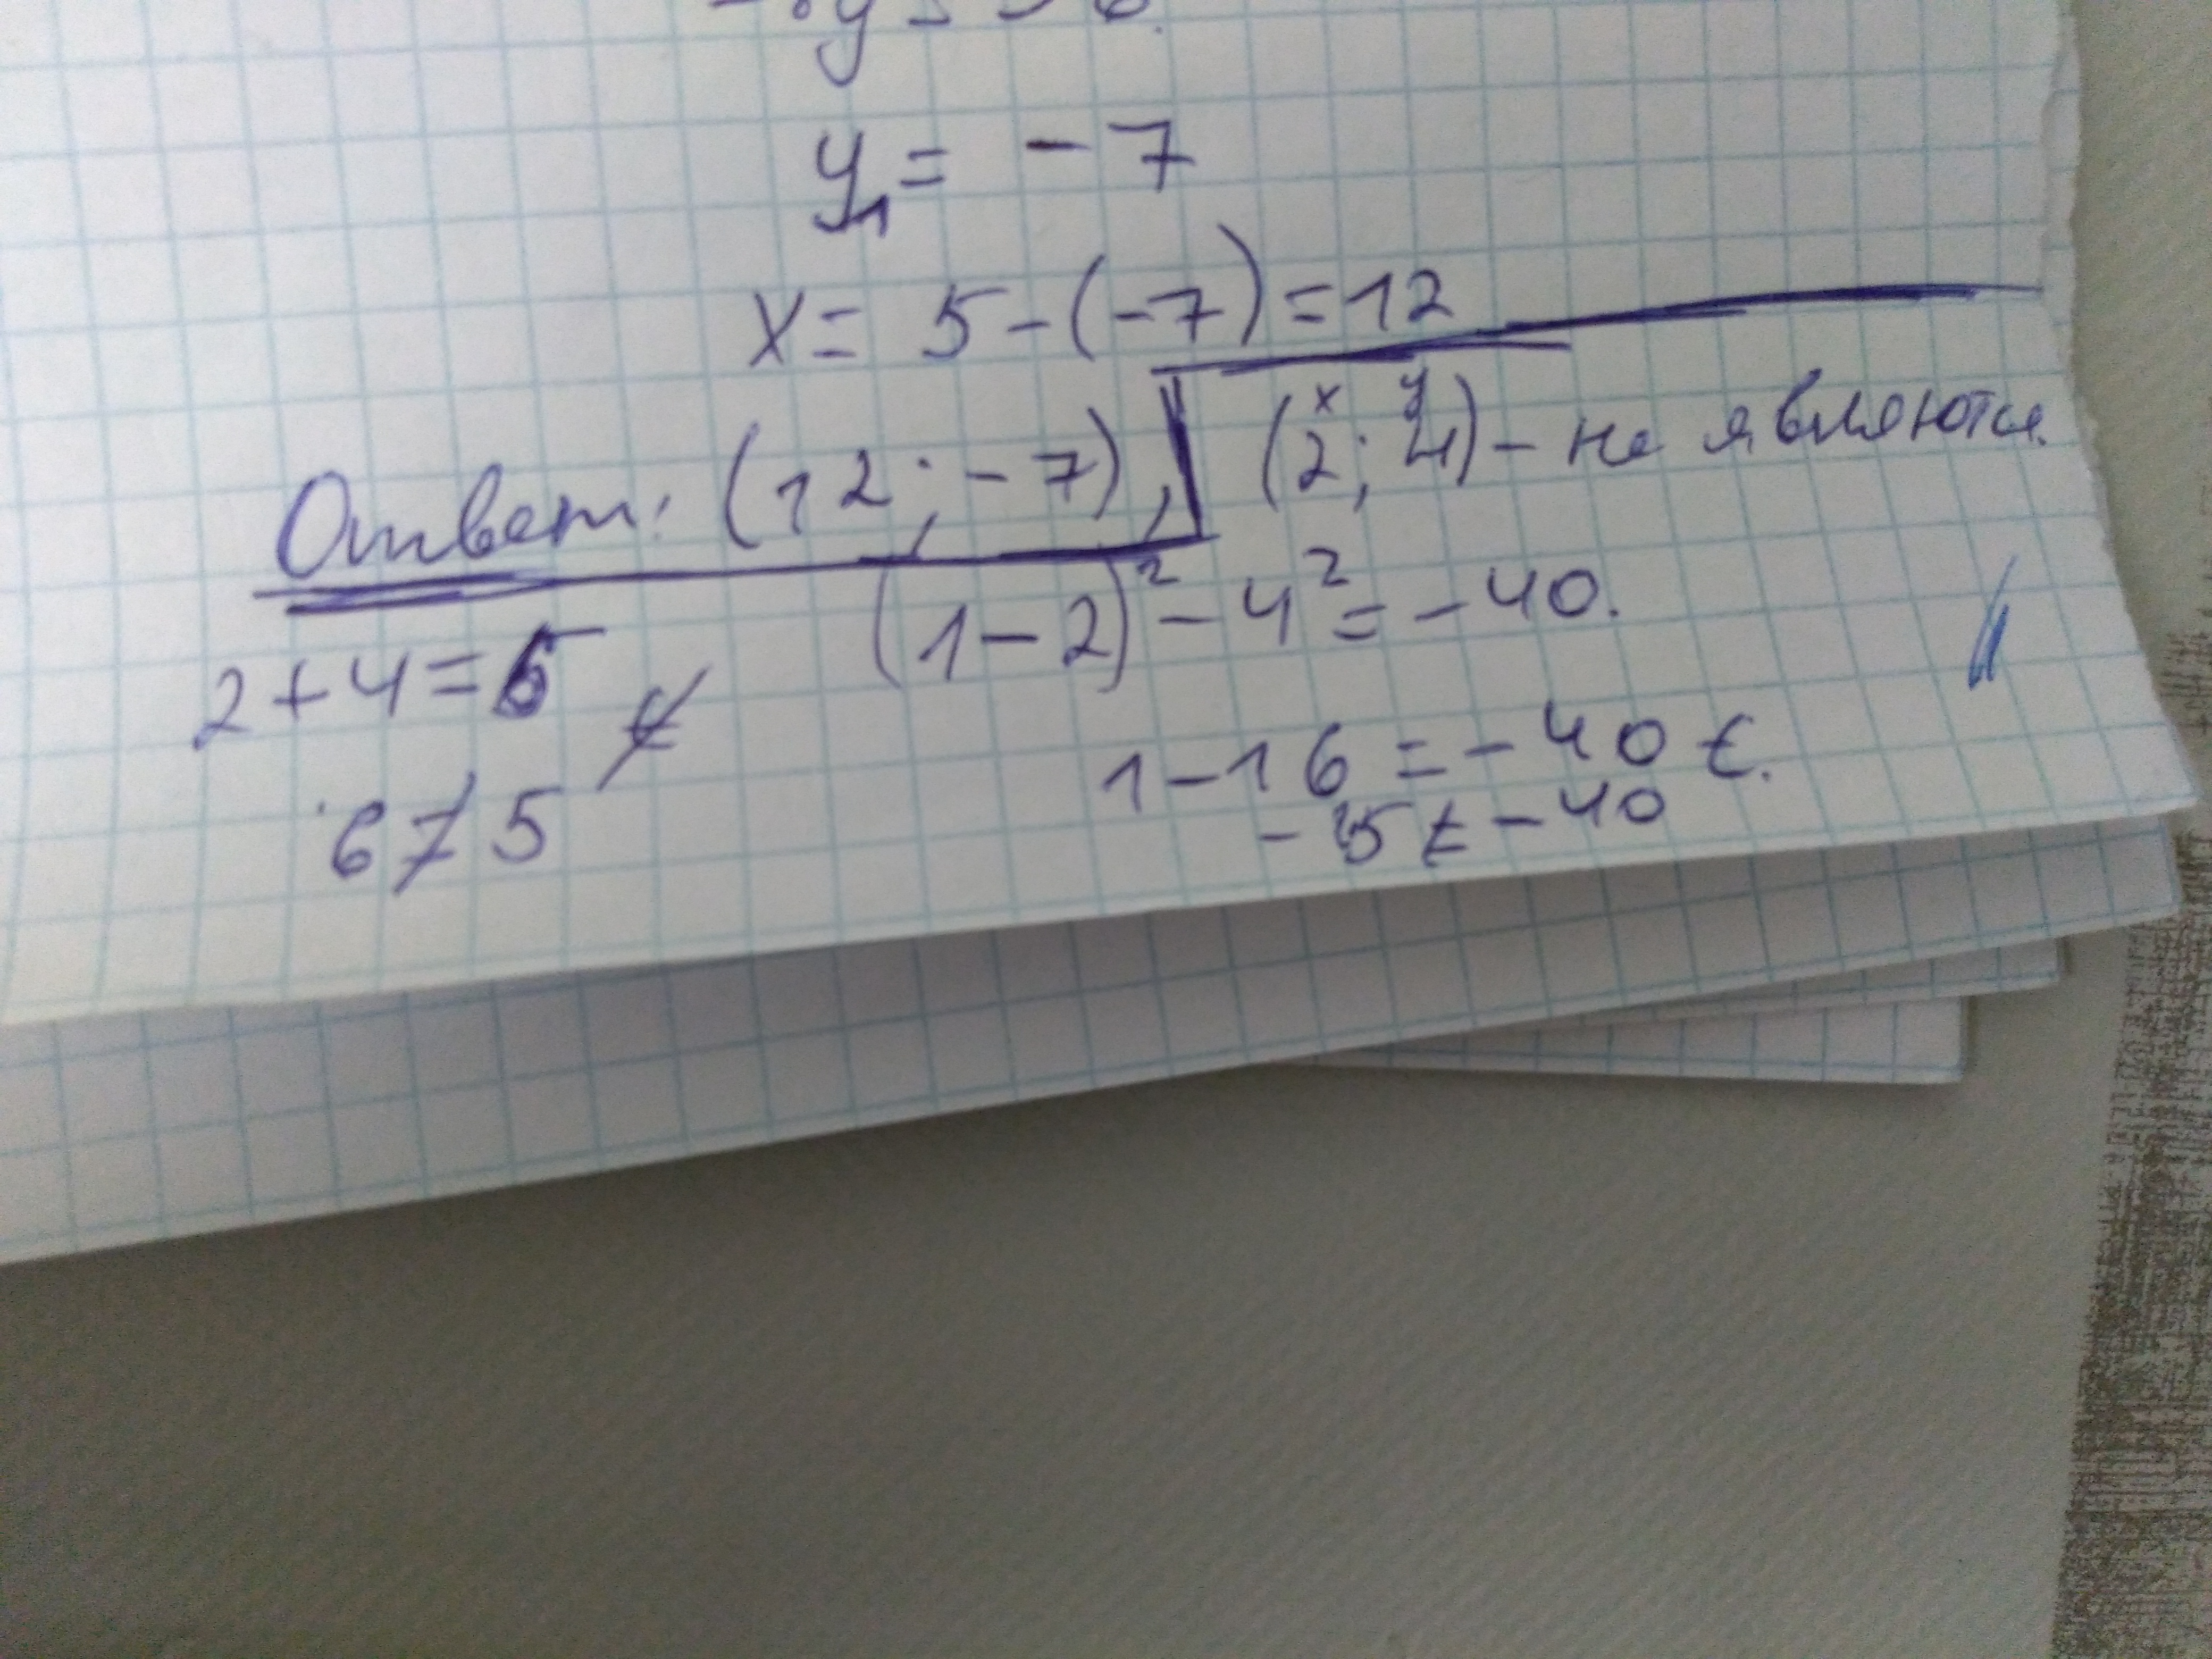 y₁ = - 7
x = 5 - (-7) = 12
Ответ: (12; -7), (2; 4) - не являются.
x y
2 + 4 = 5 (1 - 2)² - 4² = - 40.
6 ≠ 5 1 - 16 = - 40
- 15 ≠ - 40